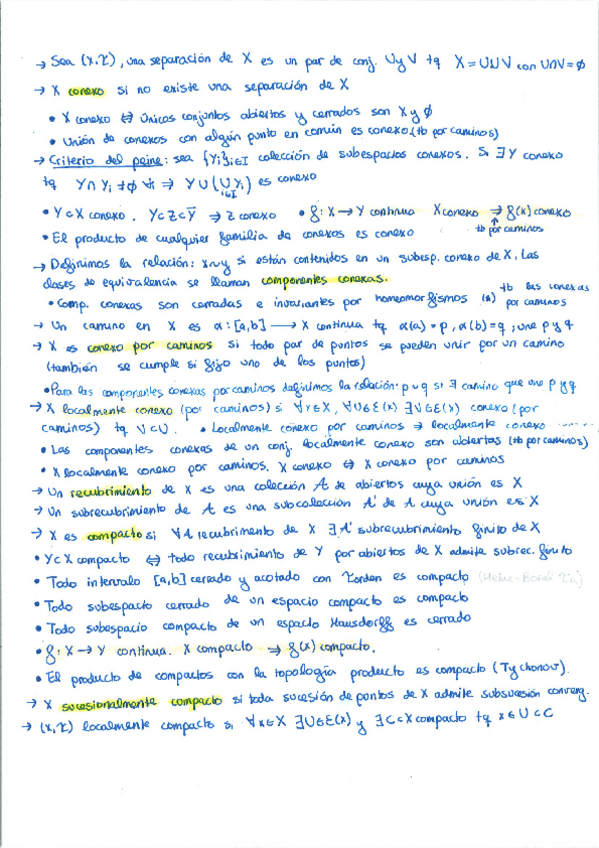 → Sea (X,τ), una separación de X es un par de conj. U y V tq X = U∪V con U∩V=∅
→ X conexo si no existe una separación de X
• X conexo ⇔ únicos conjuntos abiertos y cerrados son X y ∅
• Unión de conexos con algún punto en común es conexo (tb por caminos)
→ Criterio del peine: sea {Yi}i∈I colección de subespacios conexos. Si ∃ Y conexo
tq Y∩Yi ≠∅ ∀i ⇒ Y∪(∪Yi) i∈I es conexo
• Y⊂X conexo. Y⊂Z⊂Ȳ ⇒ Z conexo • f: X→Y continua X conexo ⇒ f(X) conexo
• El producto de cualquier familia de conexos es conexo tb por caminos
→ Definimos la relación: x~y si están contenidos en un subesp. conexo de X. Las
clases de equivalencia se llaman componentes conexas.
• Comp. conexas son cerradas e invariantes por homeomorfismos (*) tb las conexas por caminos
→ Un camino en X es α: [a,b] → X continua tq α(a)=p, α(b)=q, une p y q
→ X es conexo por caminos si todo par de puntos se pueden unir por un camino
(también se cumple si fijo uno de los puntos)
• Para las componentes conexas por caminos definimos la relación: p~q si ∃ camino que une p y q
→ X localmente conexo (por caminos) si ∀x∈X, ∀U∈ε(x) ∃V∈ε(x) conexo (por
caminos) tq V⊂U. • Localmente conexo por caminos ⇒ localmente conexo
• Las componentes conexas de un conj. localmente conexo son abiertas (tb por caminos)
• X localmente conexo por caminos. X conexo ⇔ X conexo por caminos
→ Un recubrimiento de X es una colección A de abiertos cuya unión es X
→ Un subrecubrimiento de A es una subcolección A' de A cuya unión es X
→ X es compacto si ∀A recubrimento de X ∃A' subrecubrimiento finito de X
• Y⊂X compacto ⇔ todo recubrimiento de Y por abiertos de X admite subrec. finito
• Todo intervalo [a,b] cerrado y acotado con τorden es compacto (Heine-Borel
• Todo subespacio cerrado de un espacio compacto es compacto
• Todo subespacio compacto de un espacio Hausdorff es cerrado
• f: X→Y continua. X compacto ⇒ f(X) compacto.
• El producto de compactos con la topología producto es compacto (Tychonov).
→ X sucesionalmente compacto si toda sucesión de puntos de X admite subsucesión converg.
→ (X,τ) localmente compacto si ∀x∈X ∃U∈ε(x) y ∃C⊂X compacto tq x∈U⊂C